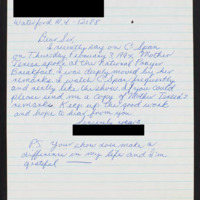 Waterford N.Y. 12188
Dear Sir,
I recently say on C. Span
on Thursday, February 3, 1994 Mother
Teresa spoke at the National Prayer
Breakfast. I was deeply moved by her
remarks. I watch C. Span frequently
and really like the show. If you could
please send me a copy of Mother Teresa's
remarks. Keep up the good work
and hope to hear from you.
Sincerely yours
PS Your show does make a
difference in my life and I'm
grateful